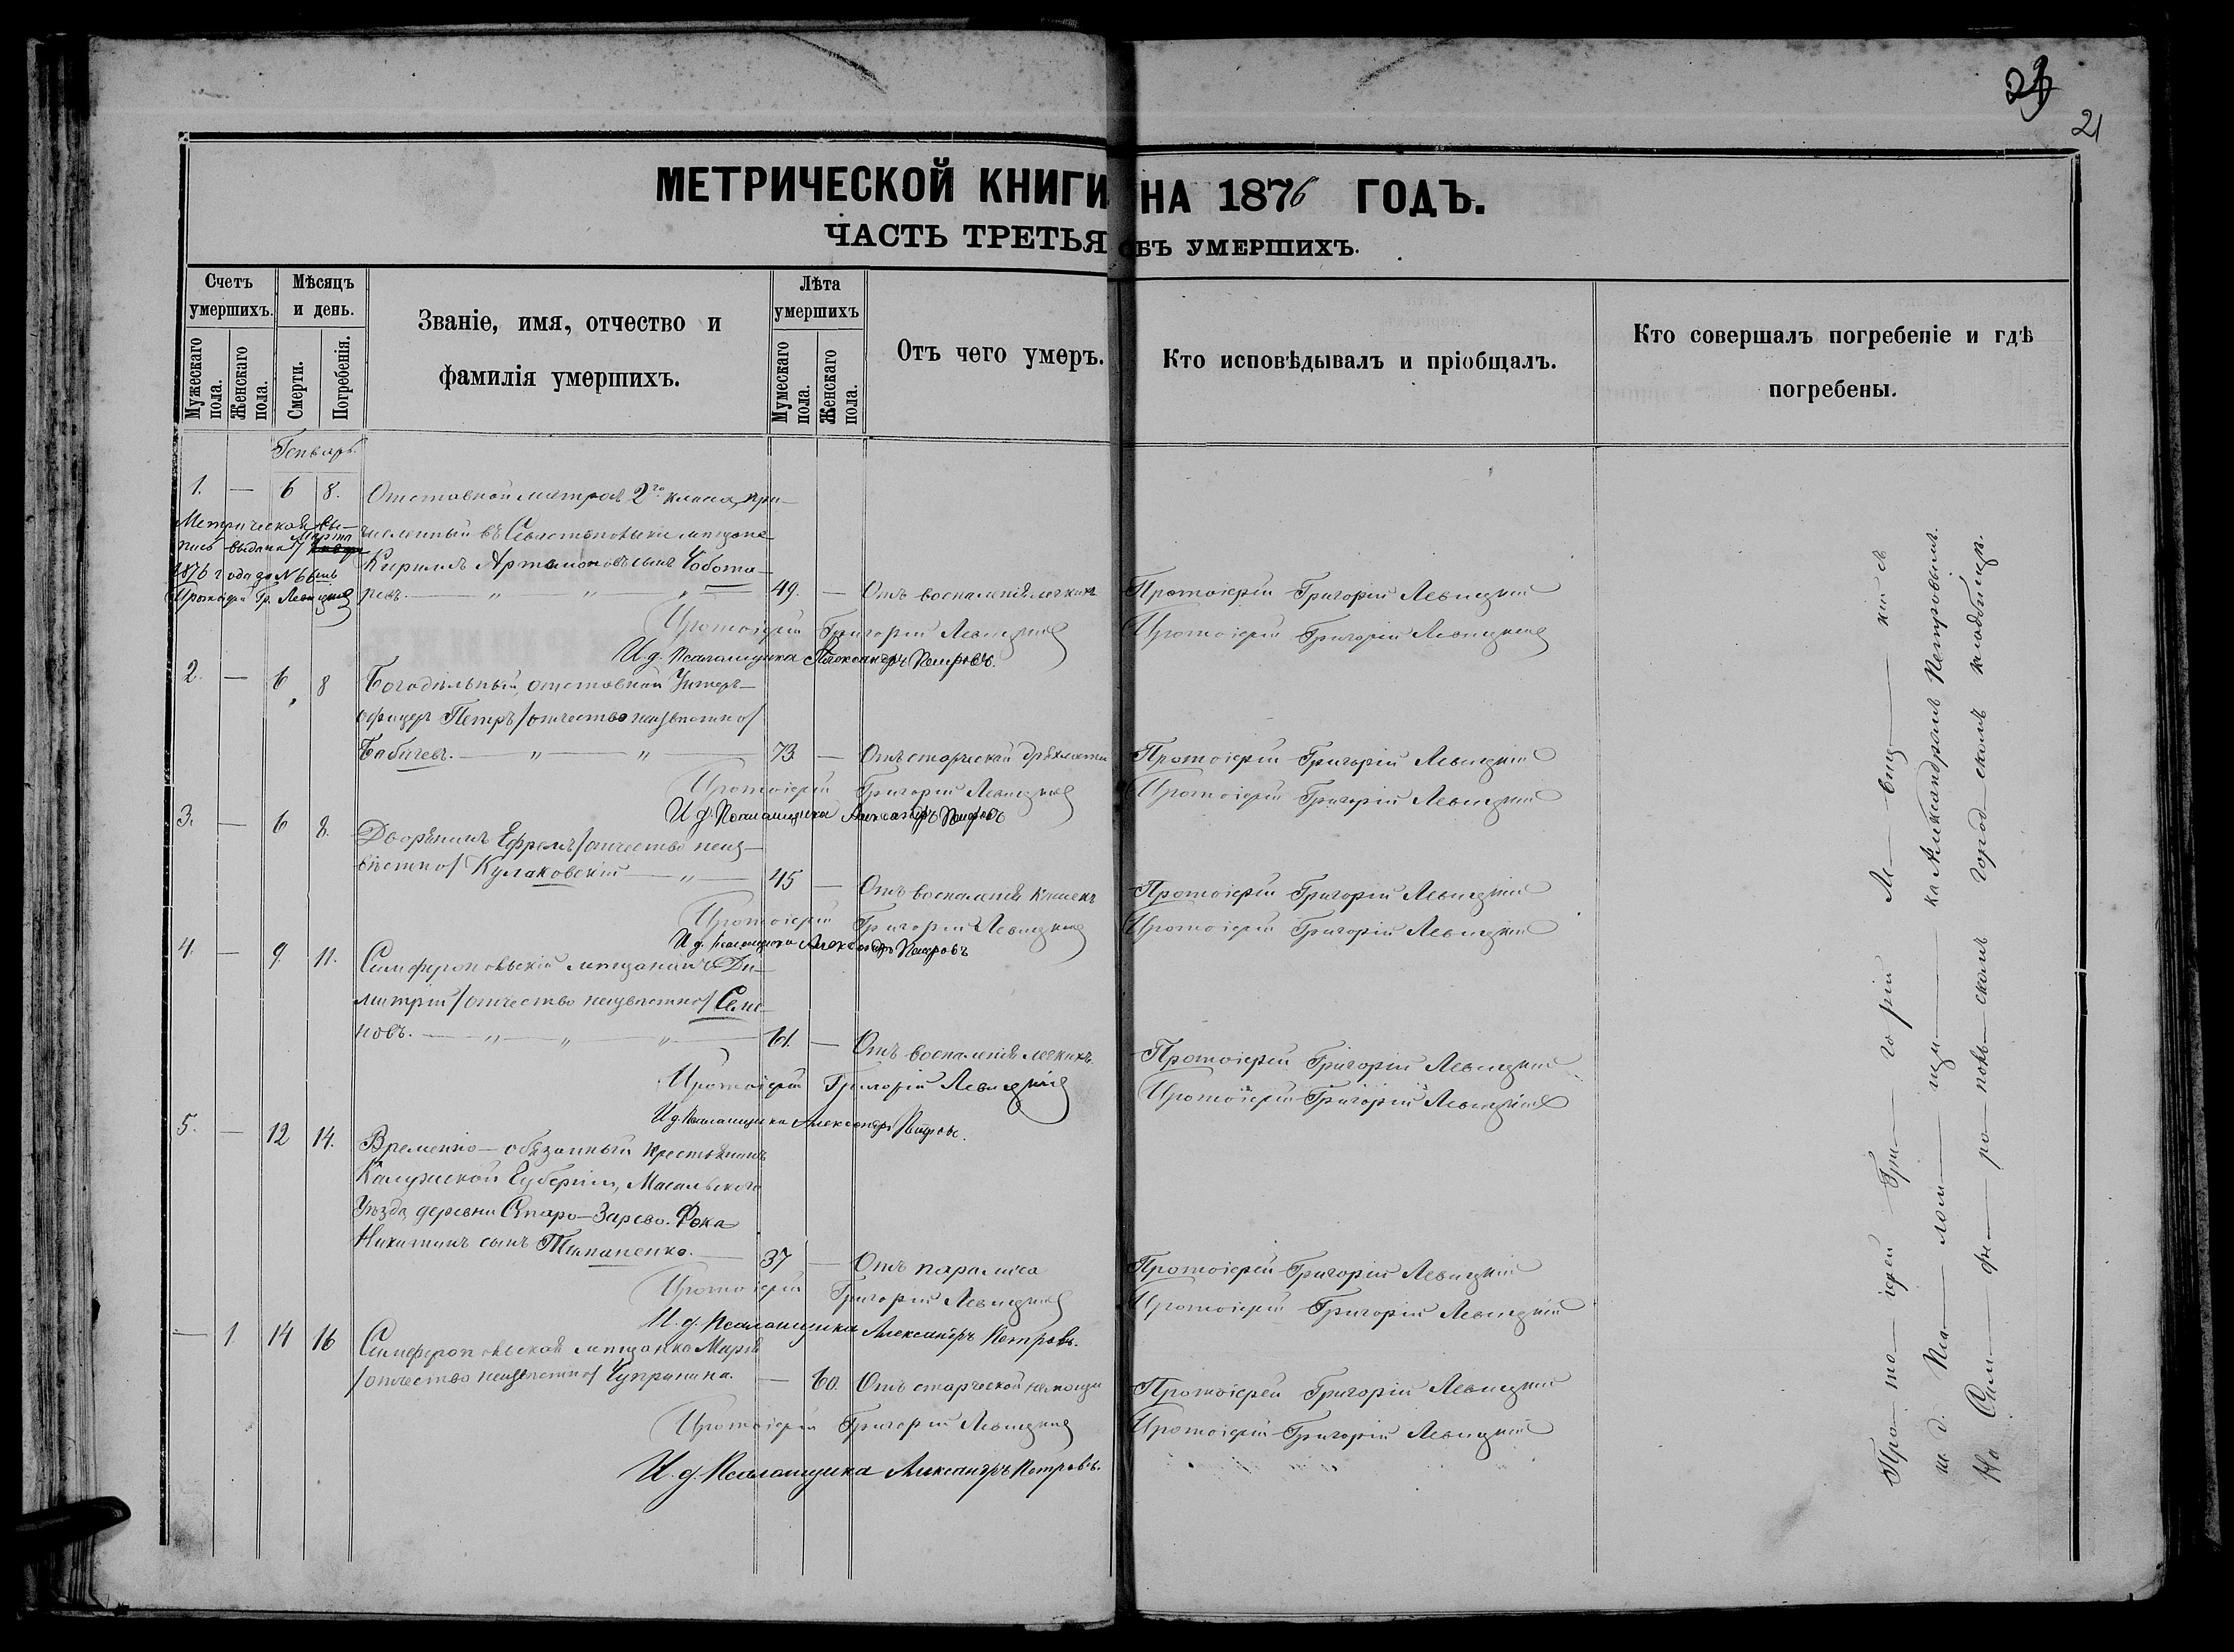 23
21
МЕТРИЧЕСКОЙ КНИГИ НА 1876 ГОДЪ.
ЧАСТЬ ТРЕТЬЯ ОБЪ УМЕРШИХЪ.
Счетъ умершихъ.
Мужескаго пола.
Женскаго пола.
Мѣсяцъ и день.
Смерти.
Погребенія.
Званіе, имя, отчество и
фамилія умершихъ.
Лѣта умершихъ
Мужескаго пола.
Женскаго пола.
Отъ чего умеръ.
Кто исповѣдывалъ и пріобщалъ.
Кто совершалъ погребеніе и гдѣ
погребены.
Генварь
1. — 6 8. Отставной матросъ 2го класса, при-
численный въ Севастопольскіе мѣщане
Кириллъ Артамоновъ сынъ Чобота-
ревъ. — " — " — " — 49. — Отъ воспаленія легкихъ Протоіерей Григорій Левицкій
Метрическая вы-
пись выдана 17 Марта
1876 года за № 66мъ
Протоіерей Гр. Левицкій
Протоіерей Григорій Левицкій Протоіерей Григорій Левицкій
И. д. Псаломщика Александръ Петровъ.
2. — 6 8 Богодѣльный, отставной Унтеръ-
офицеръ Петръ /отчество неизвѣстно/
Бабичевъ. — " — " — 73. — Отъ старческой дряхлости Протоіерей Григорій Левицкій
Протоіерей Григорій Левицкій Протоіерей Григорій Левицкій
И. д. Псаломщика Александръ Петровъ
3. — 6 8. Дворянинъ Ефремъ /отчество неиз-
вѣстно/ Кулаковскій — " — 45 — Отъ воспаленія кишекъ Протоіерей Григорій Левицкій
Протоіерей Григорій Левицкій Протоіерей Григорій Левицкій
И. д. Псаломщика Александръ Петровъ
4. — 9. 11. Симферопольскій мѣщанинъ Ди-
митрій /отчество неизвѣстно/ Семе-
новъ. — " — " — " — 61. — Отъ воспаленія легкихъ. Протоіерей Григорій Левицкій
Протоіерей Григорій Левицкій Протоіерей Григорій Левицкій
И. д. Псаломщика Александръ Петровъ.
5. — 12 14. Временно-обязанный крестьянинъ
Калужской Губерніи, Масальскаго
Уѣзда, деревни Старо-Зарево. Фока
Никитинъ сынъ — 37 — Отъ паралича Протоіерей Григорій Левицкій
Протоіерей Григорій Левицкій Протоіерей Григорій Левицкій
И. д. Псаломщика Александръ Петровъ.
— 1 14 16 Симферопольская мѣщанка Марія
/отчество неизвѣстно/ Чуприкина. — 60. Отъ старческой немощи Протоіерей Григорій Левицкій
Протоіерей Григорій Левицкій Протоіерей Григорій Левицкій
И. д. Псаломщика Александръ Петровъ.
Про — то — іерей Гри — го рій Ле — виц — кій съ
и. д. Пса — лом — щи — ка Александромъ Петровымъ.
На Сим — фе — ро — поль — скомъ город — скомъ кладбищѣ.